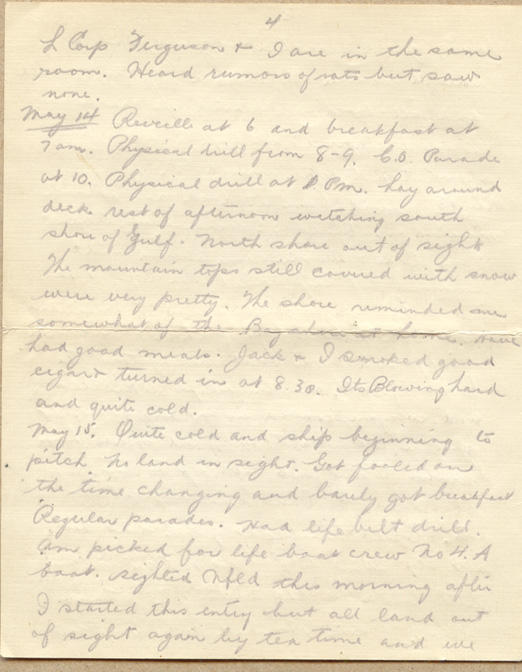 4
L Corp Ferguson & I are in the same
room. Heard rumors of rats but saw
none.
May 14 Reveille at 6 and breakfast at
7 am. Physical drill from 8-9. C.O. Parade
at 10. Physical drill at Pm. Lay around
deck rest of afternoon watching south
shore of Gulf. North shore out of sight
The mountain tops still covered with snow
were very pretty. The shore reminded me
somewhat of the Bay shore at home. Have
had good meals. Jack & I smoked good
cigars turned in at 8.30. Its Blowing hard
and quite cold.
May 15. Quite cold and ship beginning to
pitch. No land in sight. Got fooled on
the time changing and barely got breakfast
Regular parades. Had life belt drill.
Am picked for life boat crew No 4. A
boat. Sighted Nfld this morning after
I started this entry but all land out
of sight again by tea time and we